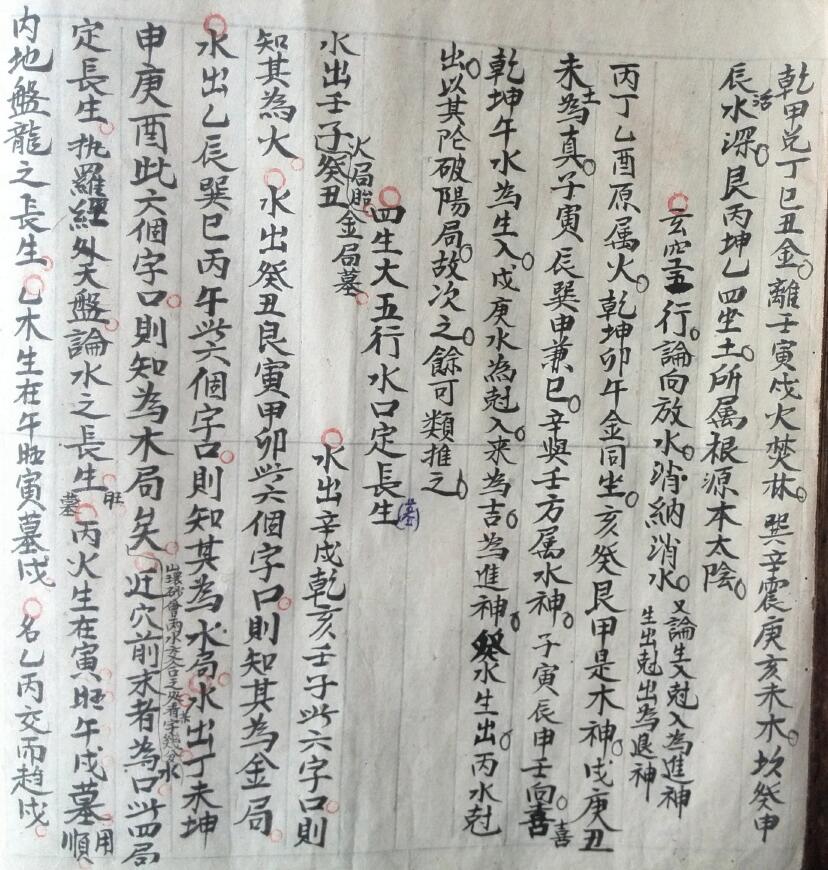 乾甲兌丁巳丑金。離壬寅戌火焚林。巽辛震庚亥未木。坎癸申
辰水深。艮丙坤乙四坐土。所属根源本太陰。
活
玄空五行。論向放水。消納消水。又論生入尅入為進神
生出尅出為退神
丙丁乙酉原属火。乾坤卯午金同坐。亥癸艮甲是木神。戌庚丑
未為真。子寅辰巽申兼巳。辛與壬方属水神。子寅辰申壬向喜
土
喜
乾坤午水為生入。戌庚水為尅入。来為吉。為進神。癸水生出。丙水尅
出。以其陰破陽局。故次之。餘可類推之。
四生大五行水口定長生(墓)
水出壬子癸丑
火局胎金局墓。
水出辛戌乾亥壬子此六字口。則
知其為火。水出癸丑艮寅甲卯此六個字口。則知其為金局。
水出乙辰巽巳丙午此六個字口。則知其為水局。水出丁未坤
申庚酉此六個字口。則知為木局矣。近穴前求者為口。此四局
水
定長生。执羅經外天盤論水之長生。丙火生在寅旺午戌墓順
旺
墓
用
内地盤龍之長生。乙木生在午旺寅墓戌。名乙丙交而趨戌。